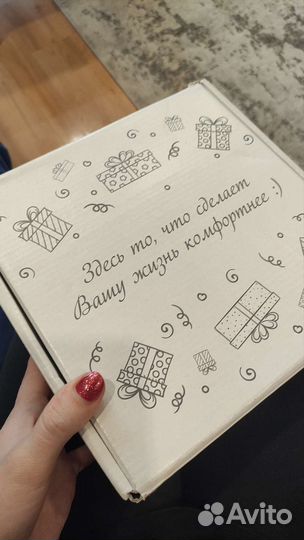 Здесь то, что сделает
Вашу жизнь комфортнее :)
Avito